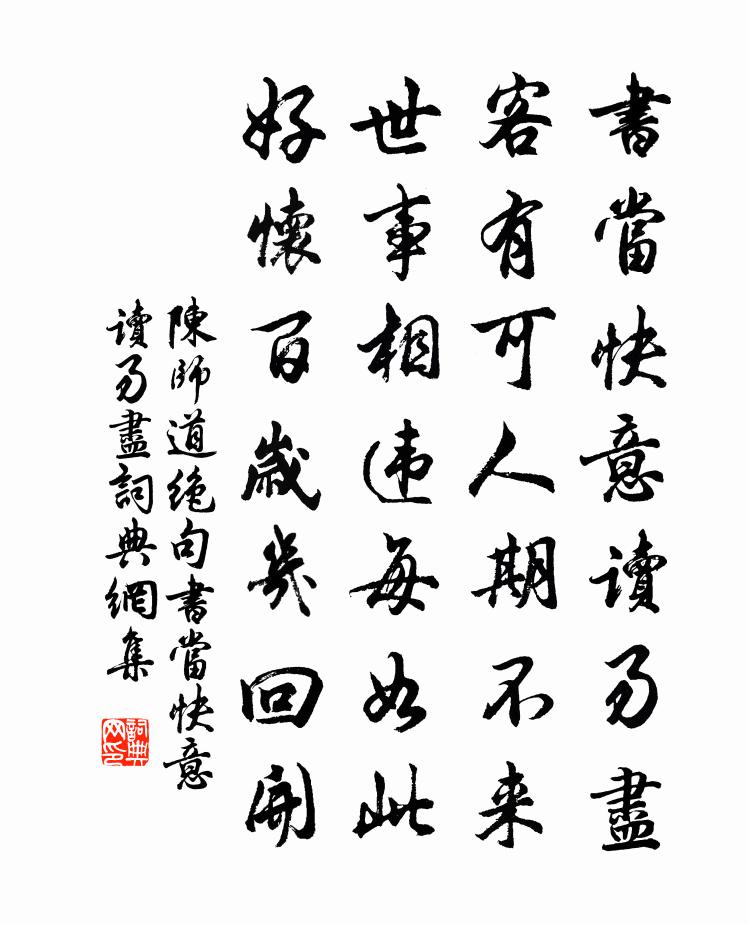 書當快意讀易盡
客有可人期不来
世事相违每如此
好懷百歲幾回開
陳師道絶句書當快意
讀易盡詞典網集
詞典网印